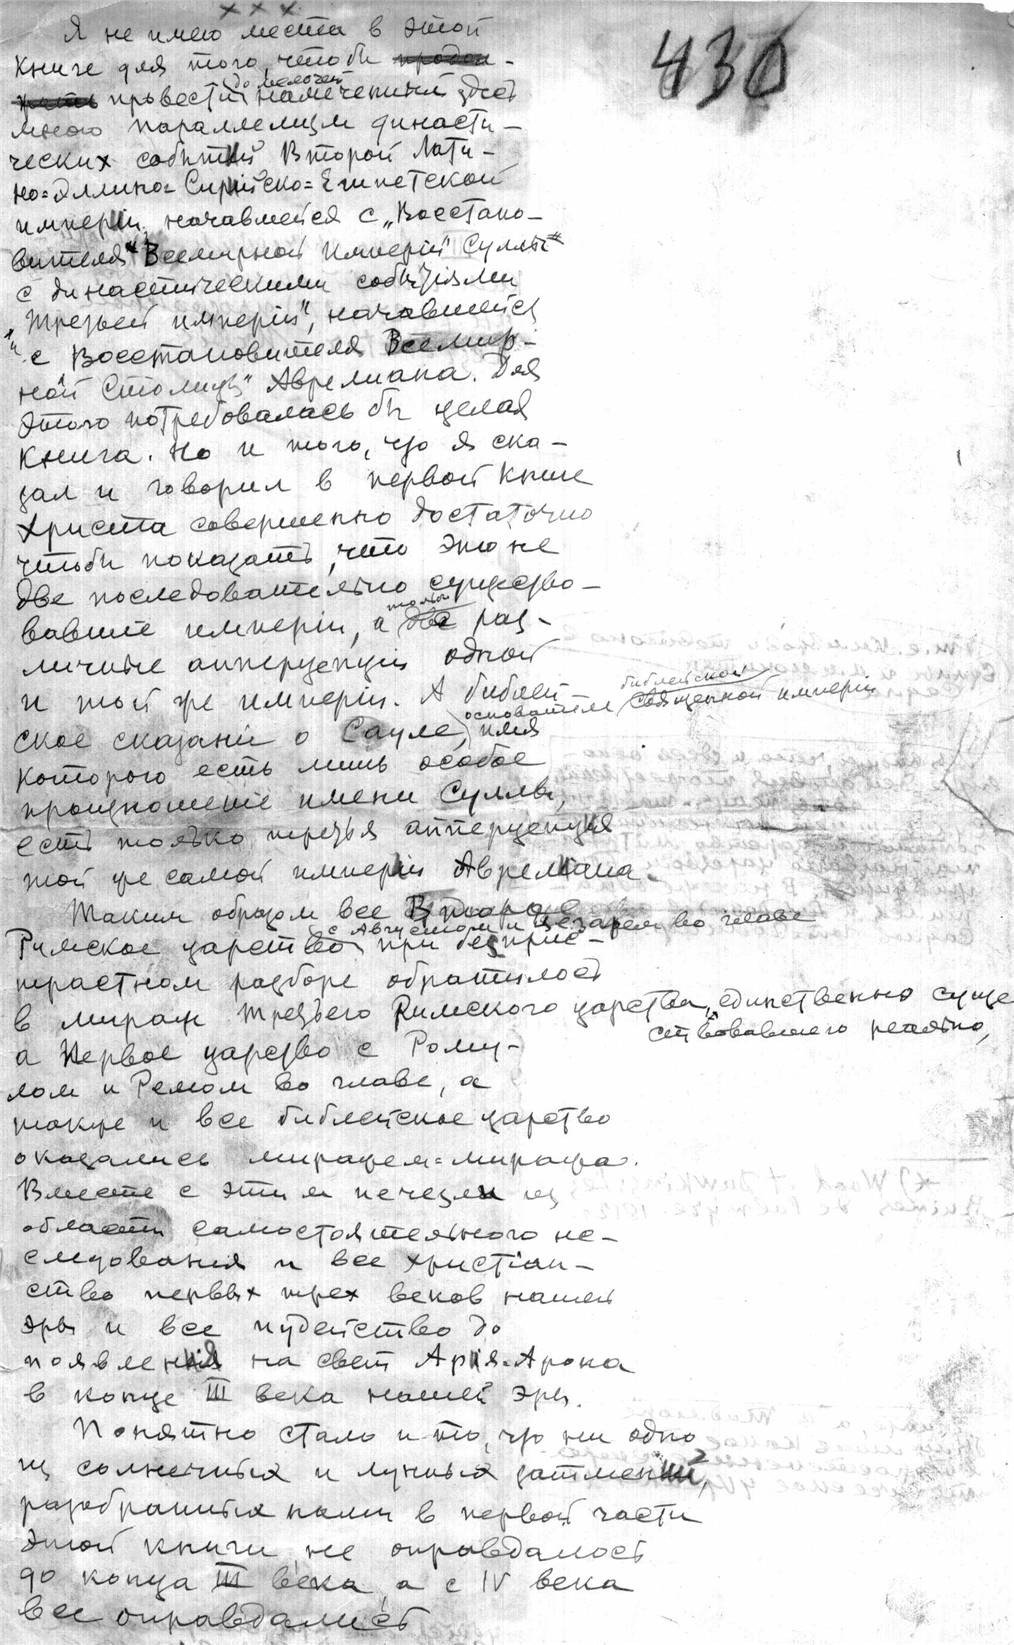 × × ×
430
Я не имею места в этой
книге для того, чтобы
провести до мелочей намеченный здесь
мною параллелизм династи-
ческих событий Второй Лати-
но=Эллино=Сирийско=Египетской
империи, начавшейся с „Восстано-
вителя Всемирной Империи Суллы"
с династическими событиями
„Третьей империи", начавшейся
с „Восстановителя Всемир-
ной Столицы" Аврелиана. Для
этого потребовалась бы целая
книга. Но и того, что я ска-
зал и говорил в первой книге
Христа совершенно достаточно
чтобы показать, что это не
две последовательно существо-
вавшие империи, а только раз-
личные апперцепции одной
и той же империи. А библей-
ское сказание о Сауле, основателе библейской Священной империи имя
которого есть лишь особое
произношение имени Суллы,
есть только третья апперцепция
той же самой империи Аврелиана.
Таким образом все Второе
Римское царство с Августом и Цезарем во главе при беспри-
страстном разборе обратилось
в мираж Третьего Римского царства, единственно суще
ствовавшего реально,
а Первое царство с Рому-
лом и Ремом во главе, а
также и все библейское царство
оказались миражем=миража.
Вместе с этим исчезли из
области самостоятельного ис-
следования и все христиан-
ство первых трех веков нашей
эры и все иудейство до
появления на свет Ария-Арона
в конце III века нашей эры.
Понятно стало и то, что ни одно
из солнечных и лунных затмений,
разобранных нами в первой части
этой книги, не оправдалось
до конца III века, а с IV века
все оправдались